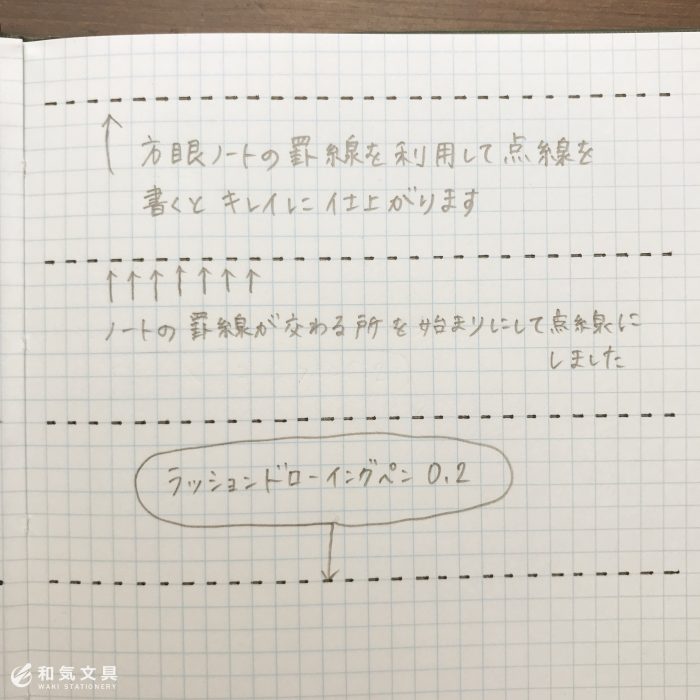 方眼ノートの罫線を利用して点線を
書くとキレイに仕上がります
ノートの罫線が交わる所を始まりにして点線に
しました
ラッションドローイングペン 0.2
和気文具
WAKI STATIONERY